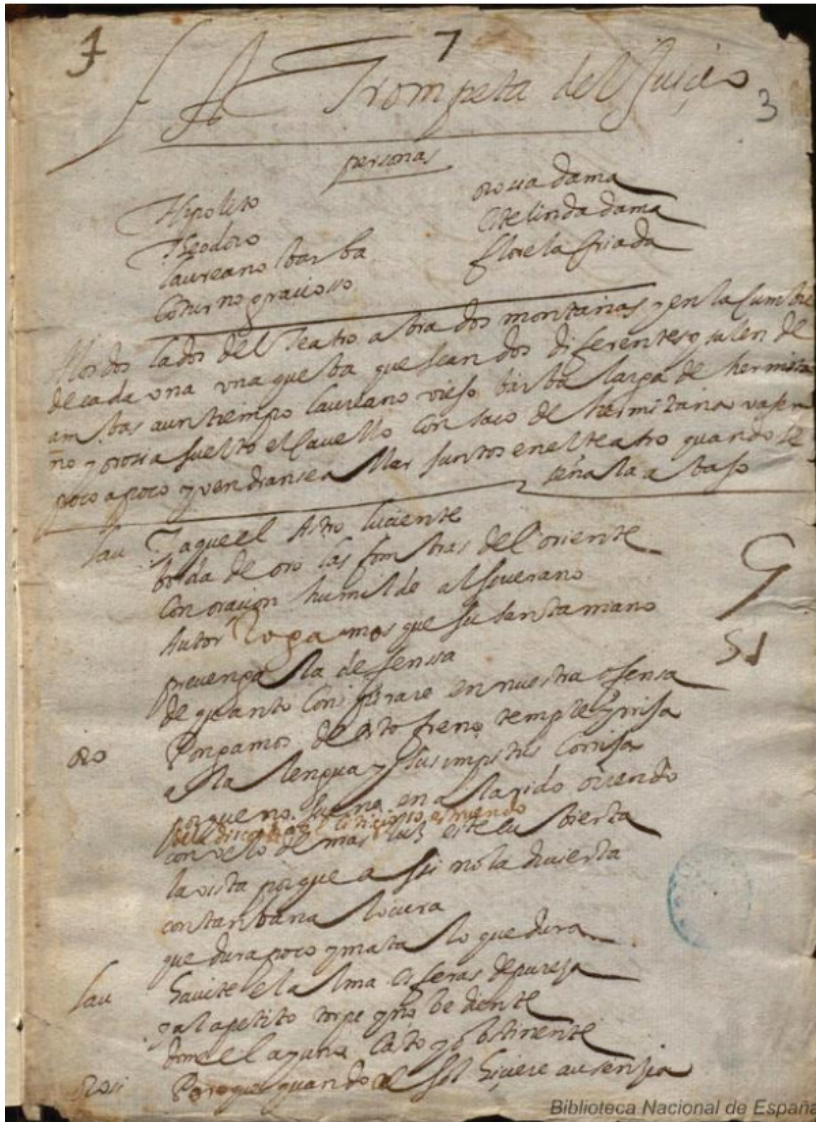 7
Trompeta del Juiçio
3
personas
Hipolito
Theodoro
laureano barba
Coturno graciosso
orosia dama
dama
criada
A los dos lados del teatro abra dos montañas y en la cumbre
de cada una una que sean dos diferentes y salen de
ambas a un tiempo laureano viejo barba larga de hermita
ño y orosia suelto el Cavello con saco de hermitaña
poco a poco y vendranse a allar juntos en el teatro quando se
señala abajo
lau Ya que el Astro luciente
borda de oro las sombras del oriente
Con oracion humilde al soverano
Autor Rogamos que su santa mano
prevenga la defenssa
de quanto Conspirare en nuestra ofensa
oro Pongamos
a la lengua y sus impetus Corrija
porque no suene en alarido orrendo
con velo de mas luz este cubierta
la vista porque a si no la divierta
con tan bana locura
que dura poco y mata lo que dura
lau el alma esferas de pureza
y al apetito
Porque quando el sol hiciere ausençia
Biblioteca Nacional de España